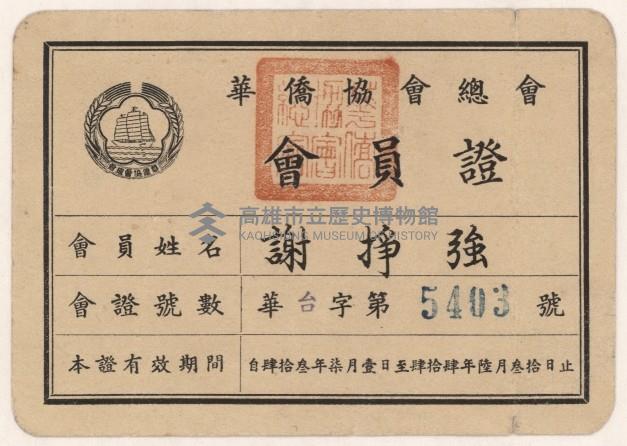 華僑協會總會
會員證
高雄市立歷史博物館
KAOHSIUNG MUSEUM OF HISTORY
會員姓名 謝掙強
會證號數 華台字第 5403 號
本證有效期間 自肆拾叁年柒月壹日至肆拾肆年陸月叁拾日止